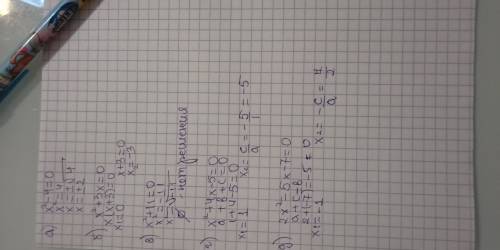 а) x²-4=0
x²=4
x=±√4
x=±2
б) x²+3x=0
x(x+3)=0
x₁=0 x+3=0
x₂=-3
в) x²+11=0
x²=-11
x=√-11
∅ - нет решения
г) x²+4x-5=0
a+b+c=0
1+4-5=0
x₁=1 x₂=c/a=-5/1=-5
д) 2x²-5x-7=0
a+c=b
2+(-7)=-5
x₁=-1 x₂=-c/a=7/2